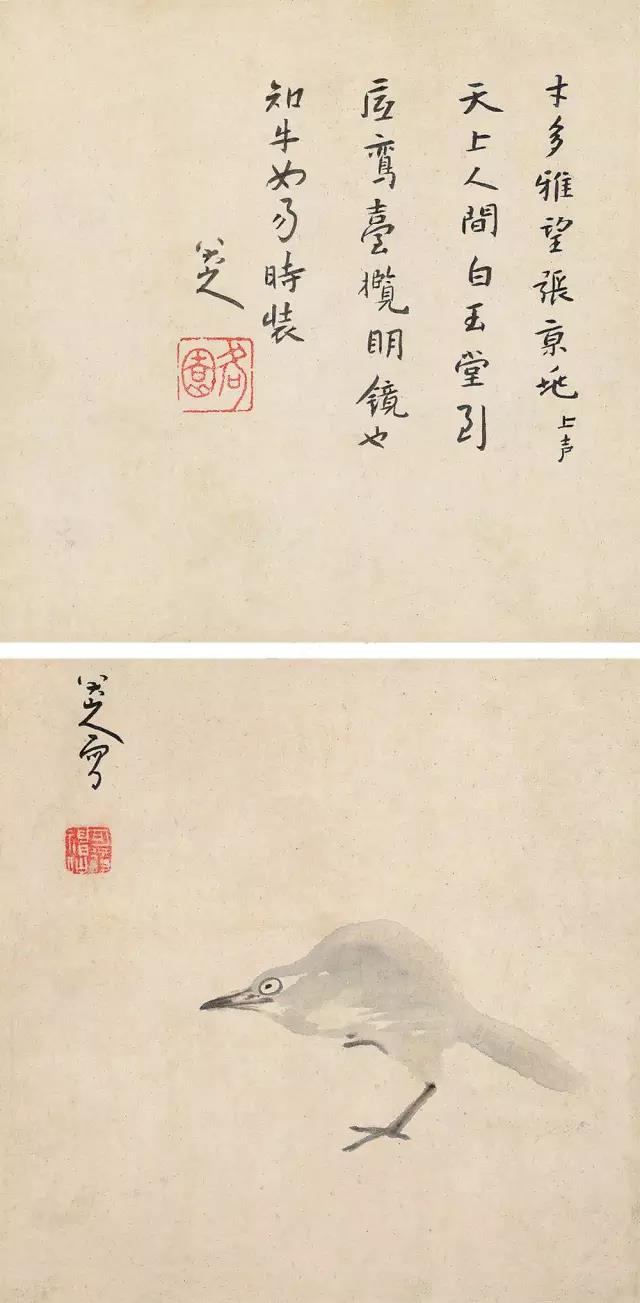 才多雅望張京兆 上声
天上人間白玉堂到
底鸞臺攬明鏡也
知牛女易時裝
八大山人
八大山人寫
可得神仙